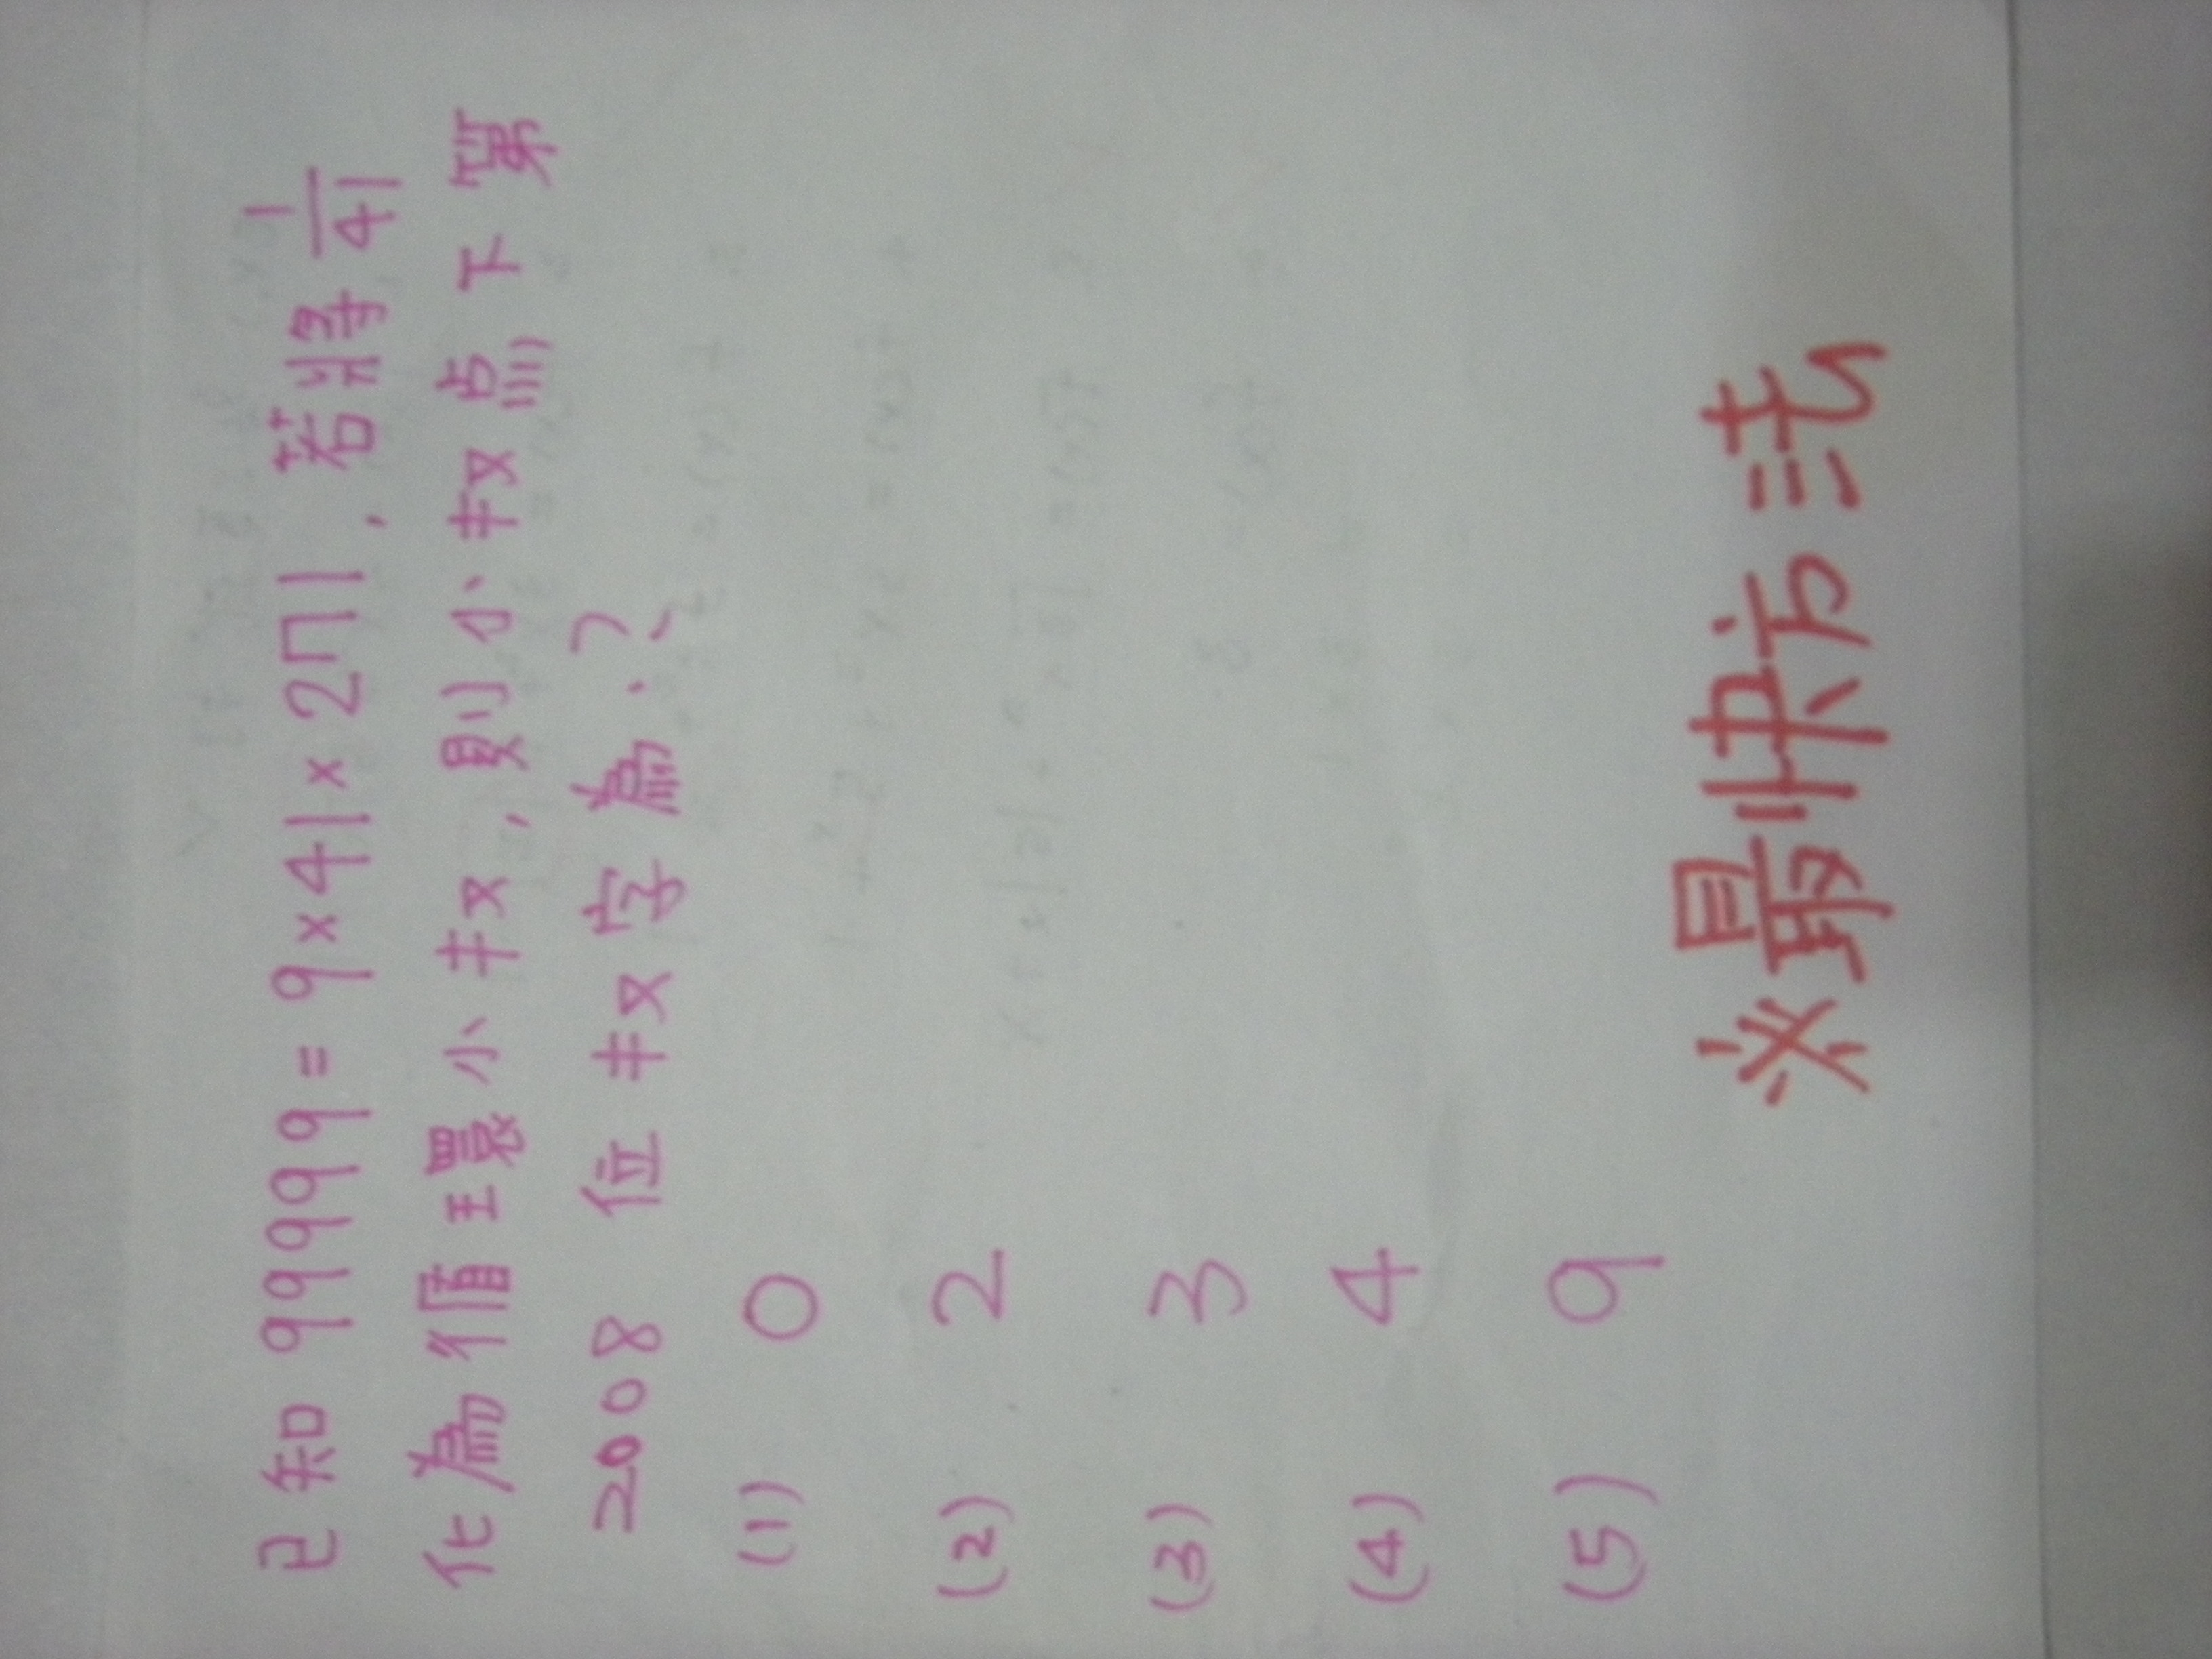 已知 99999=9×41×271,若將 1/41
化為循環小数,則小数点下第
2008 位数字為?
(1) 0
(2) 2
(3) 3
(4) 4
(5) 9
※最快方法